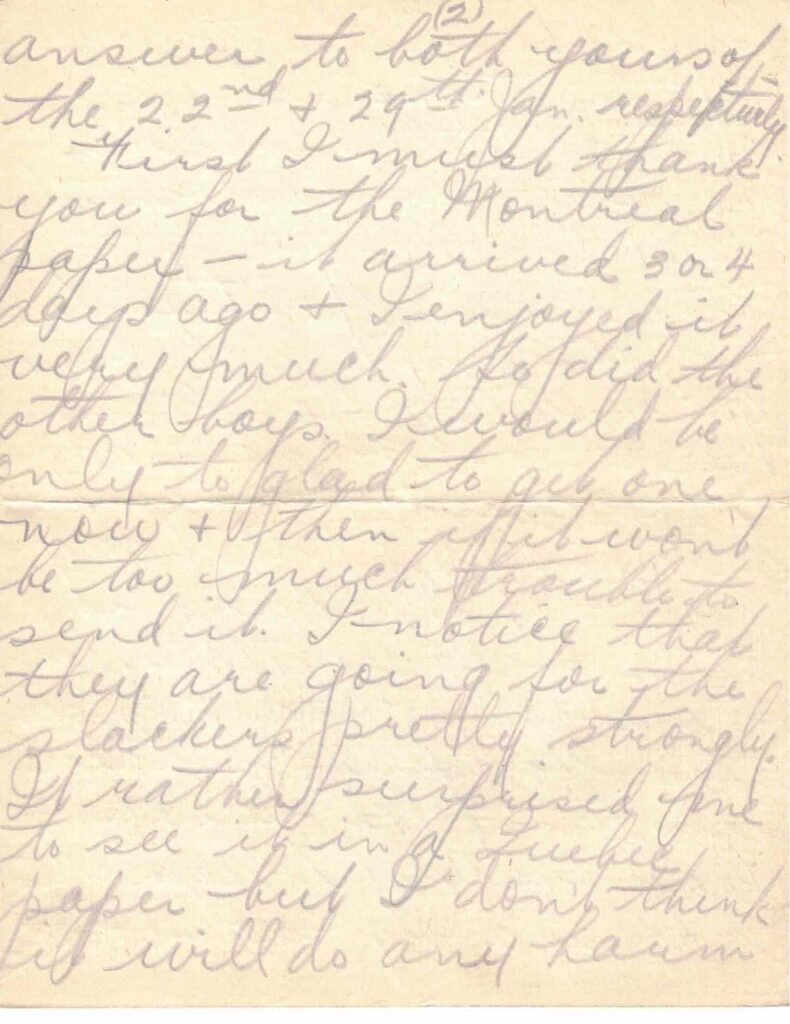 (2)
answer to both yours of
the 22nd + 29th Jan. respectively.
First I must thank
you for the Montreal
paper – it arrived 3 or 4
days ago + I enjoyed it
very much. So did the
other boys. I would be
only to glad to get one
now + then if it won't
be too much trouble to
send it. I notice that
they are going for the
slackers pretty strongly.
It rather surprised me
to see it in a Quebec
paper but I don't think
it will do any harm